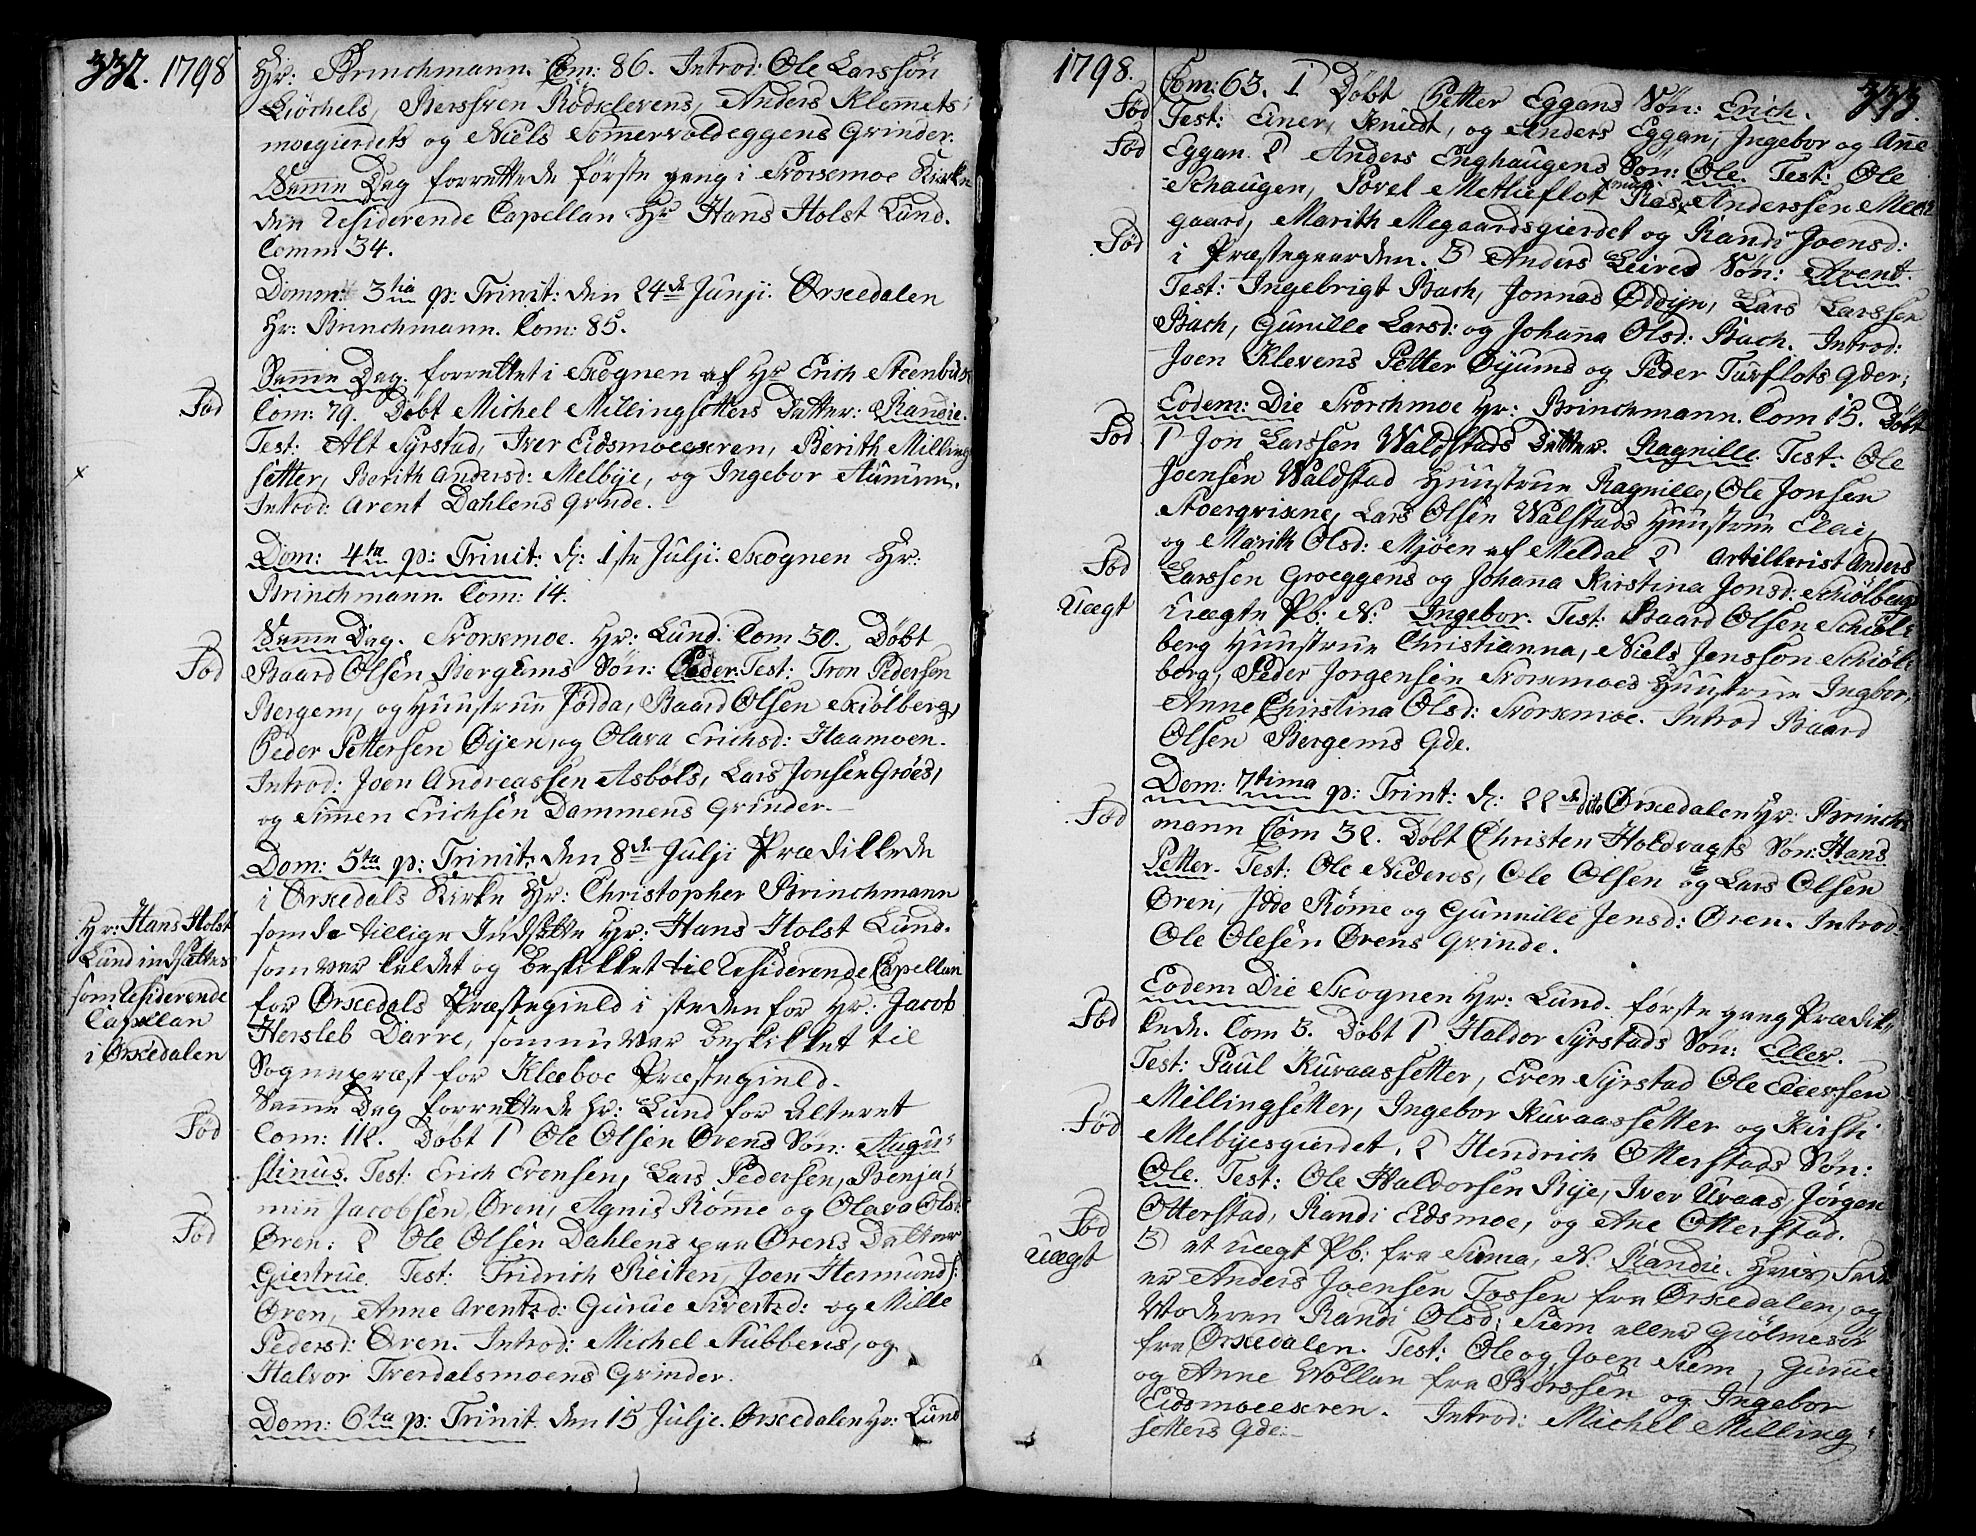 332. 1798
Hr: Brinchmann. Com: 86. Introd: Ole Larssön
Liöchels, Berssven Rödklevens, Anders Klemets-
moegierdets og Niels Somervoldeggens Qvinder.
Samme Dag forrettede förste gang i Korsemoe Kirke
den Residerende Capellan Hr Hans Holst Lund.
Comm 34.
Domm: 3tia p: Trinit: den 24de Junji. Orkedalen
Hr: Brinchmann. Com: 85.
Samme Dag forrettet i Skognen af Hr Erich Steenbuk
Fød
Com: 79. Døbt Michel Millingsetters Datter: Randie.
Test: Alt Syrstad, Iver Eidsmoeexren, Berith Milling
setter, Berith Andersd: Melbye, og Ingebor
Introd: Arent Dahlens Qvinde.
Dom: 4ta p: Trinit: d: 1ste Julji. Skognen Hr:
Brinchmann. Com: 14.
Samme Dag. Korsemoe. Hr: Lund. Com 30. Døbt
Fød
Baard Olsen Bergems Søn: Peder. Test: Tron Pedersen
Bergem, og Huustrue Jødda, Baard Olsen Skiölberg,
Peder Pettersen Öyen, og Olava Erichsd: Haamoen.
Introd: Joen Andreassen Asböls, Lars Jonsen Gröes,
og Simen Erichsen Dammens Qvinder.
Dom: 5ta p: Trinit: den 8de Julji Prædikkede
i Orkedals Kirke Hr: Christopher Brinchmann
Hr: Hans Holst
Lund indsættes
som Residerende
Capellan
i Orkedalen
som da tillige Indsatte Hr: Hans Holst Lund.
som var kaldet og beskikket til Residerende Capellan
for Orkedals Præstegield i steden for Hr: Jacob
Hersleb Darre, som nu var beskikket til
Sognepræst for Klæboe Præstegield.
Samme Dag forrettede Hr: Lund for Alteret
Fød
Com: 112. Døbt 1 Ole Olsen Örens Søn: Augu-
stinus. Test: Erich Evensen, Lars Pedersen, Benja-
min Jacobsen Ören, Agnis Röme og Olava Olsd:
Fød
Ören: 2 Ole Olsen Dahlens paa Örens Datter
Giertrue. Test: Fridrich Reiten, Joen Hermunds:
Ören, Anne Arentzd: Gurue Sivertzd: og Mille
Pedersd: Ören. Introd: Michel Stubbens, og
Halvor Tverdalsmoens Qvinder.
Dom: 6ta p: Trinit. den 15 Julji. Orkedalen Hr: Lund
1798. 333.
Fød
Com: 63. 1 Døbt Petter Eggans Søn: Erich.
Test: Einer, Knudt, og Anders Eggan, Ingebor og Ane
Fød
Eggan. 2 Anders Enghaugens Søn: Ole. Test: Ole
Schaugen, Povel Metlieflot Anderssen Mee
gaard, Marith Megaardsgierdet og Randi Joensd:
Fød
i Præstegaarden. 3 Anders Leires Søn: Arent.
Test: Ingebrigt Bach, Jonnas Oddyn, Lars Larssen
Bach, Gunille Larsd: og Johanna Olsd: Bach. Introd:
Joen Klevens Petter Öyums og Peder Turflots Qder.
Eodem: Die Korchmoe Hr: Brinchmann. Com 15. Døbt
Fød
1 Jon Larssen Waldstads Datter. Ragnille. Test: Ole
Joensen Waldstad Huustrue Ragnille, Ole Jonsen
Lars Olsen Walstads Huustrue Elai,
og Marith Olsd: Mjöen af Meldal 2 Artillerist Anders
Fød
Uægt
Larssen Groeggens og Johanna Kirstina Jonsd: Schiölbergs
Uægte Pb: N: Ingebor. Test: Baard Olsen Schiöl-
berg Huustrue Christianna, Niels Jenssön Schiöl-
berg, Peder Jorgensen Korsemoes Huustrue Ingbor,
Anne Christina Olsd: Korsemoe. Introd Baard
Olsen Bergems Qde.
Fød
Dom: 7tima p: Trint: d: 22de dito Orkedalen Hr: Brinch-
mann Com 32. Døbt Christen Holdvagts Søn: Hans
Petter. Test: Ole Nideros, Ole Olsen og Lars Olsen
Ören, Jdde Röme og Gunnille Jensd: Ören. Introd:
Ole Olesen Örens Qvinde.
Eodem Die Skognen Hr: Lund. förste gang Prædik-
Fød
kede. Com 3. Døbt 1 Haldor Syrstads Søn: Eller.
Test: Paul Kuraassetter, Even Syrstad Ole Ellefsen
Fød
Millingsetter, Ingebor Kuraassetter og Kirsti
Melbyesgierdet, 2 Hendrich Otterstads Søn:
Ole. Test: Ole Haldorsen Rye, Iver Uvaas, Jörgen
Fød
Uægt
Otterstad, Randi Eidsmoe, og Ane Otterstad.
3 et Uægt Pb: fra N. Randie. Hvis Far
er Anders Joensen Fossen fra Orkedalen, og
Moderen Randi Olsd: Siem eller Giölmesör
fra Orkedalen. Test: Ole og Joen Siem, Gurue
og Anne Wollan fra Börssen og Ingebor
Eidsmoeexren. Introd: Michel Milling-
setters Qde.